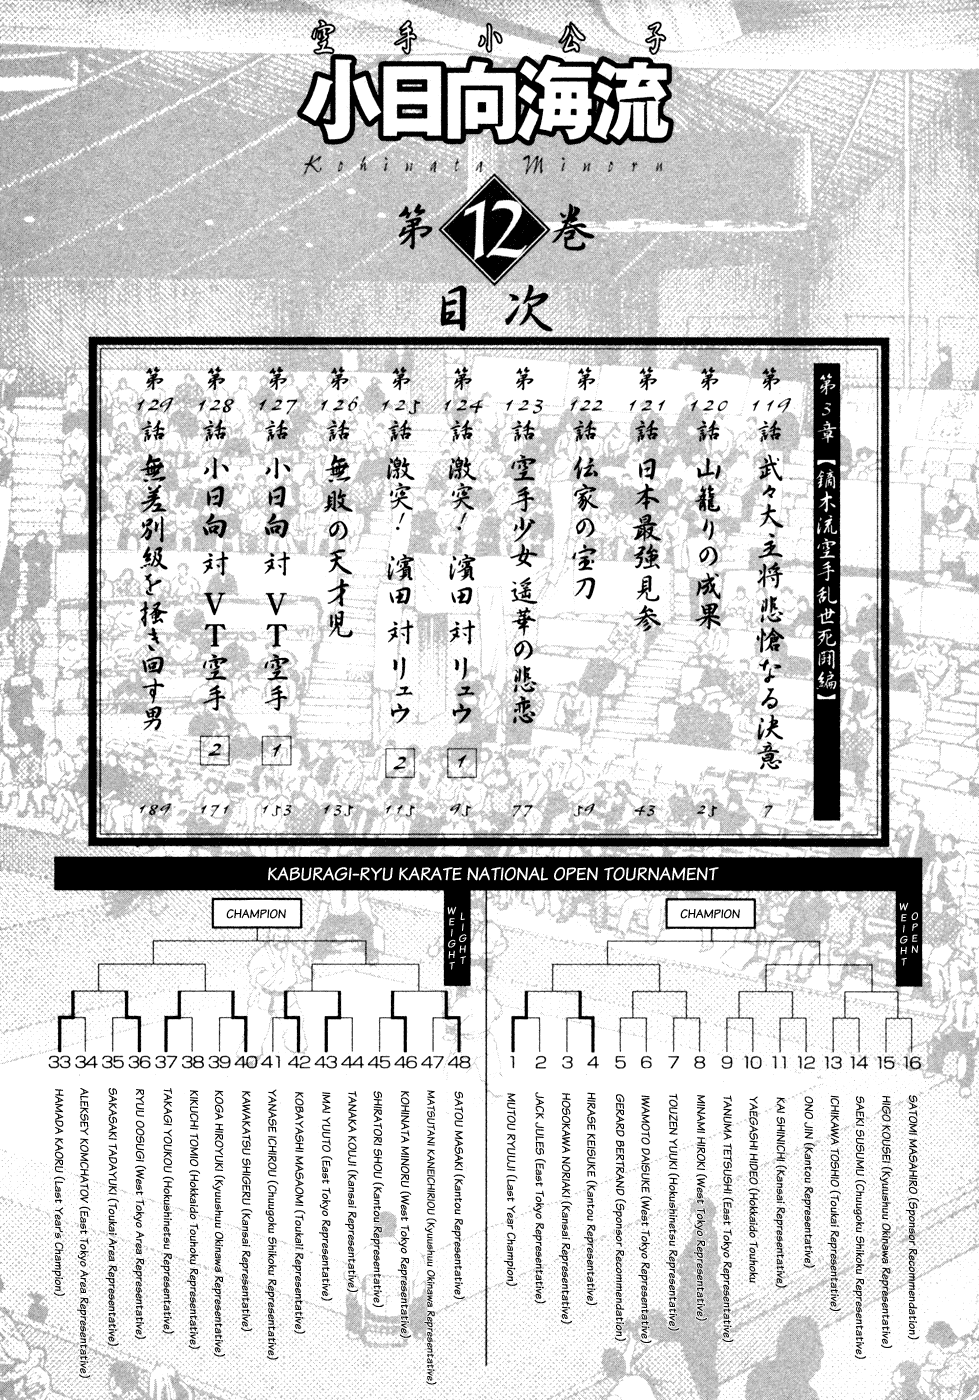 空手小公子
小日向海流
Kohinata Minoru
第12巻
目次
第3章【鏑木流空手乱世死闘編】
第119話 武々大主将悲愴なる決意 7
第120話 山籠りの成果 25
第121話 日本最強見参 43
第122話 伝家の宝刀 59
第123話 空手少女 遥華の悲恋 77
第124話 激突! 濱田 対 リュウ 1 95
第125話 激突! 濱田 対 リュウ 2 115
第126話 無敗の天才児 135
第127話 小日向 対 VT空手 1 153
第128話 小日向 対 VT空手 2 171
第129話 無差別級を掻き回す男 189
KABURAGI-RYU KARATE NATIONAL OPEN TOURNAMENT
CHAMPION
LIGHT WEIGHT
33 HAMADA KAORU (Last Year's Champion)
34 ALEKSEY KOMCHATOV (East Tokyo Area Representative)
35 SAKASAKI TADAYUKI (Toukai Area Representative)
36 RYUU OOSUGI (West Tokyo Area Representative)
37 TAKAGI YOUKOU (Hokushinetsu Representative)
38 KIKUCHI TOMIO (Hokkaido Touhoku Representative)
39 KOGA HIROYUKI (Kyuushuu Okinawa Representative)
40 KAWAKATSU SHIGERU (Kansai Representative)
41 YANASE ICHIROU (Chuugoku Shikoku Representative)
42 KOBAYASHI MASAOMI (Toukaii Representative)
43 IMAI YUUTO (East Tokyo Representative)
44 TANAKA KOUJI (Kansai Representative)
45 SHIRATORI SHOU (Kantou Representative)
46 KOHINATA MINORU (West Tokyo Representative)
47 MATSUTANI KANEICHIROU (Kyuushuu Okinawa Representative)
48 SATOU MASAKI (Kantou Representative)
CHAMPION
OPEN WEIGHT
1 MUTOU RYUUJI (Last Year Champion)
2 JACK JULES (East Tokyo Representative)
3 HOSOKAWA NORIAKI (Kansai Representative)
4 HIRASE KEISUKE (Kantou Representative)
5 GERARD BERTRAND (Sponsor Recommendation)
6 IWAMOTO DAISUKE (West Tokyo Representative)
7 TOUZEN YUUKI (Hokushinetsu Representative)
8 MINAMI HIROKI (West Tokyo Representative)
9 TANUMA TETSUSHI (East Tokyo Representative)
10 YAEGASHI HIDEO (Hokkaido Touhoku
11 KAI SHINICHI (Kansai Representative)
12 ONO JIN (Kantou Representative)
13 ICHIKAWA TOSHIO (Toukai Representative)
14 SAEKI SUSUMU (Chuugoku Shikoku Representative)
15 HIGO KOUSEI (Kyuushuu Okinawa Representative)
16 SATOMI MASAHIRO (Sponsor Recommendation)